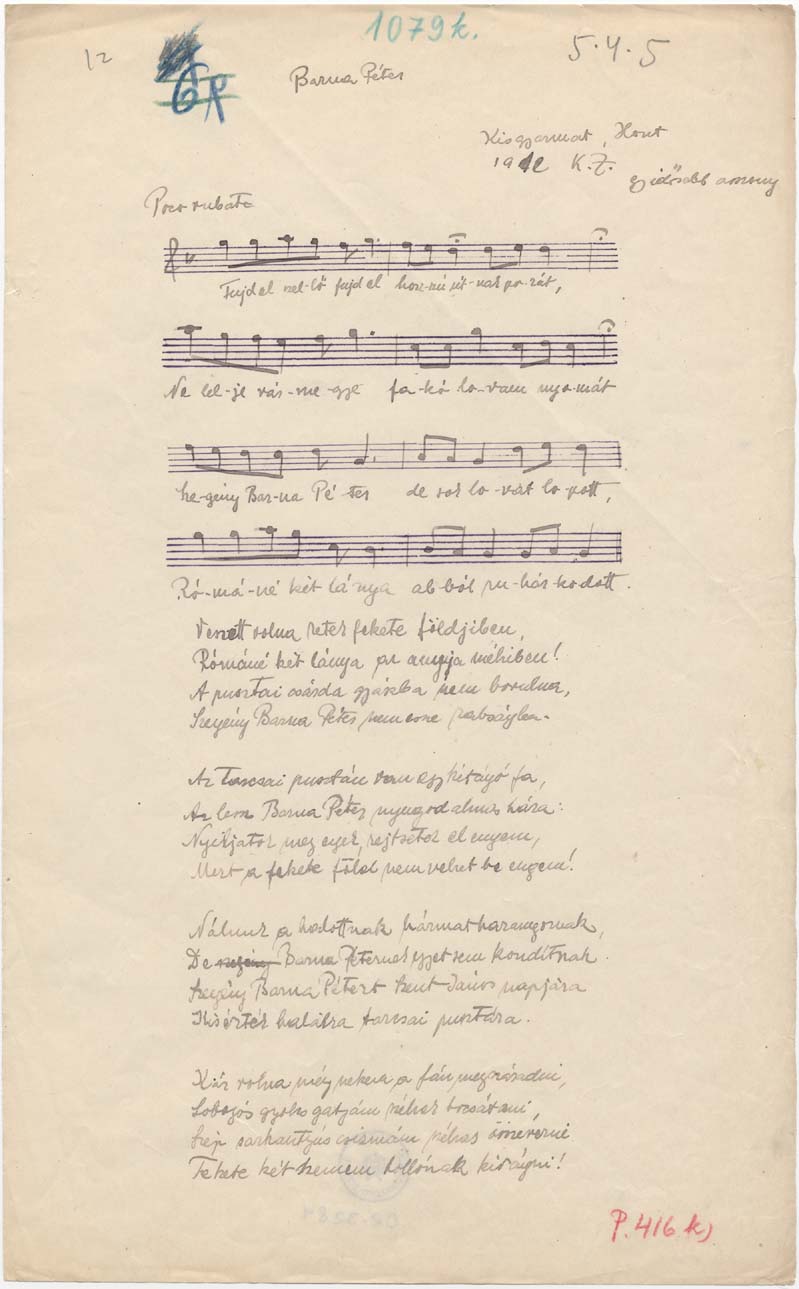 1079k.
12
5·4·5
Barna Péter
Kisgyarmat, Hont
1912 K.Z.
egy idősebb asszony
Poco rubato
Fujd el szel-lő fujd el hosz-szú út-nak po-rát,
Ne lel-je vár-me-gye fa-kó lo-vam nyo-mát
Sze-gény Bar-na Pé-ter de sok lo-vat lo-pott,
Ró-má-né két lá-nya ab-ból ru-hás-ko-dott.
Veszett volna retek fekete földjiben,
Rómáné két lánya az annyja méhiben!
A pusztai csárda gyászba nem borulna,
Szegény Barna Péter nem esne
Az tarcsai pusztán van egy kitáyó fa,
Az lesz Barna Péter nyugodalmas háza:
Nyiljatok meg egek, rejtsétek el engem,
Mert a fekete föld nem vehet be engem!
Nálunk a halottnak hármat harangoznak,
De szegény Barna Péternek egyet sem kondítnak.
Szegény Barna Pétert Szent János napjára
Kisérték halálra tarcsai pusztára.
Kár volna még nekem a fán megszáradni,
Lobogós gyolcs gatyám szélnek bocsátani,
Szép sarkantyús csizmám összeverni
Fekete két szemem hollónak kivágni!
P. 416 k)